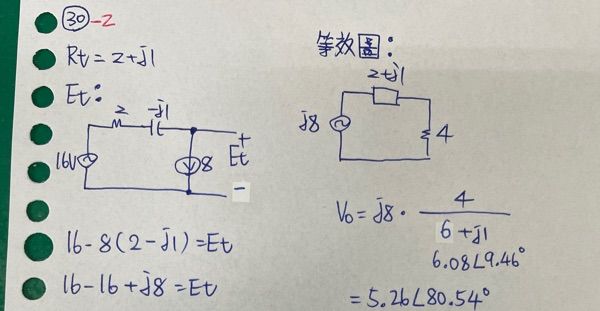 30-2
Rt = 2+j1
Et:
2
-j1
16V
8
+
Et
-
16-8(2-j1)=Et
16-16+j8=Et
等效圖:
2+j1
j8
4
Vo = j8 · 4 / 6+j1
6.08∠9.46°
= 5.26∠80.54°